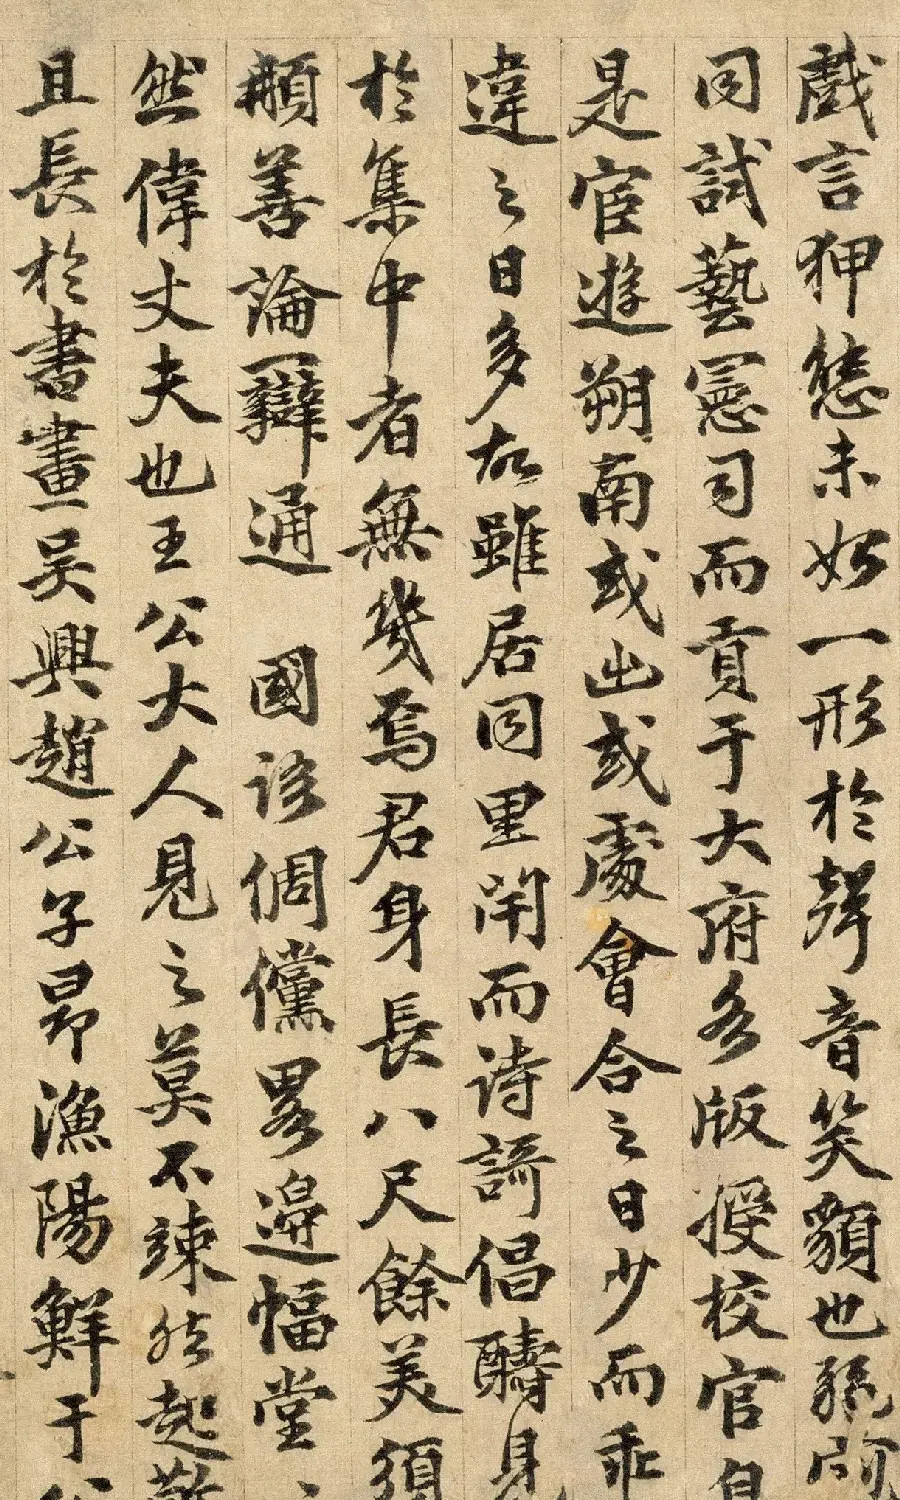 戲言狎態未始一形於聲音笑貌也既而
同試藝憲司而貢于大府各版授校官自
是宦遊朔南或出或處會合之日少而乖
違之日多故雖居同里閈而詩謌倡酬見
於集中者無幾焉君身長八尺餘美須
髯善論辯通 國語倜儻略邊幅堂〻
然偉丈夫也王公大人見之莫不竦然起敬
且長於書畫吳興趙公子昂漁陽鮮于公